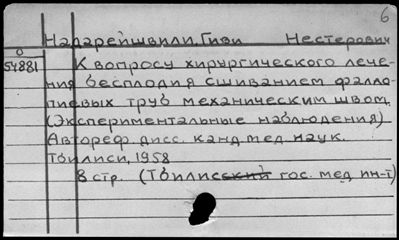 6
Надарейшвили, Гиви Нестерович
О
54881
К вопросу хирургического лече-
ния бесплодия сшиванием фалло-
пиевых труб механическим швом.
(Экспериментальные наблюдения)
Автореф. дисс. канд мед наук.
Тбилиси, 1958
8 стр. (Тбилисский гос. мед ин-т)